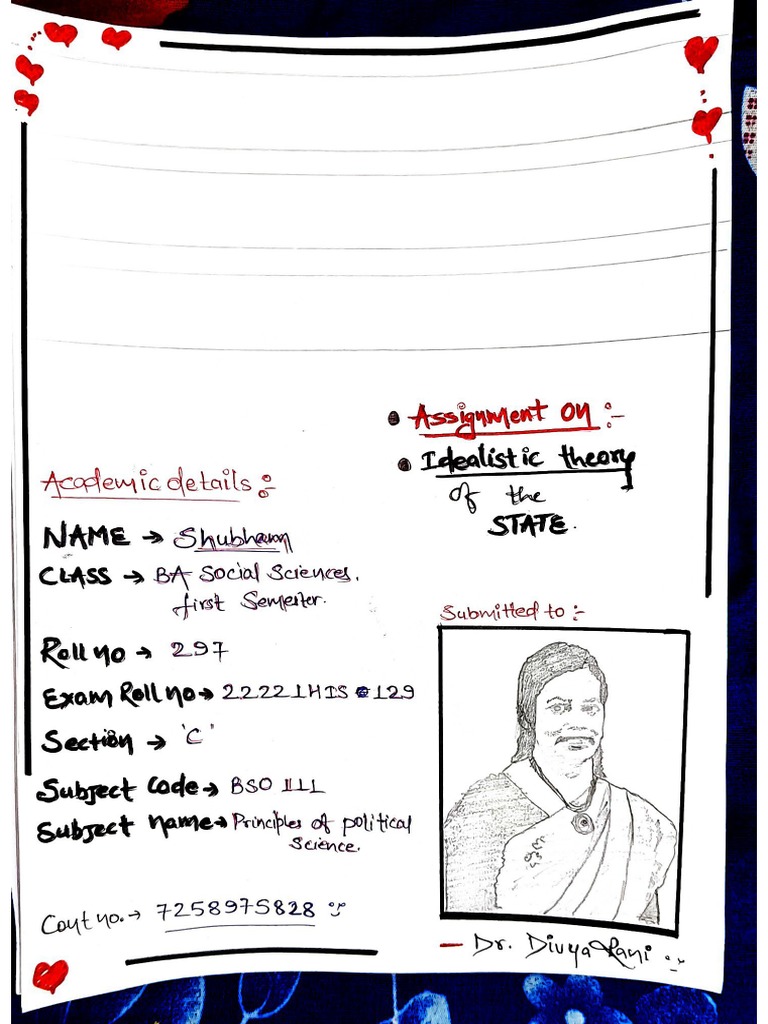 • Assignment on :-
• Idealistic theory
of the
STATE.
Academic details :-
NAME → Shubham
CLASS → BA Social Sciences.
first Semester.
Roll no → 297
Exam Roll no → 22221HIS129
Section → 'C'
Subject Code → BSO 111
Subject name → Principles of political
Science.
Cont no. → 7258975828
Submitted to :-
- Dr. Divya Rani